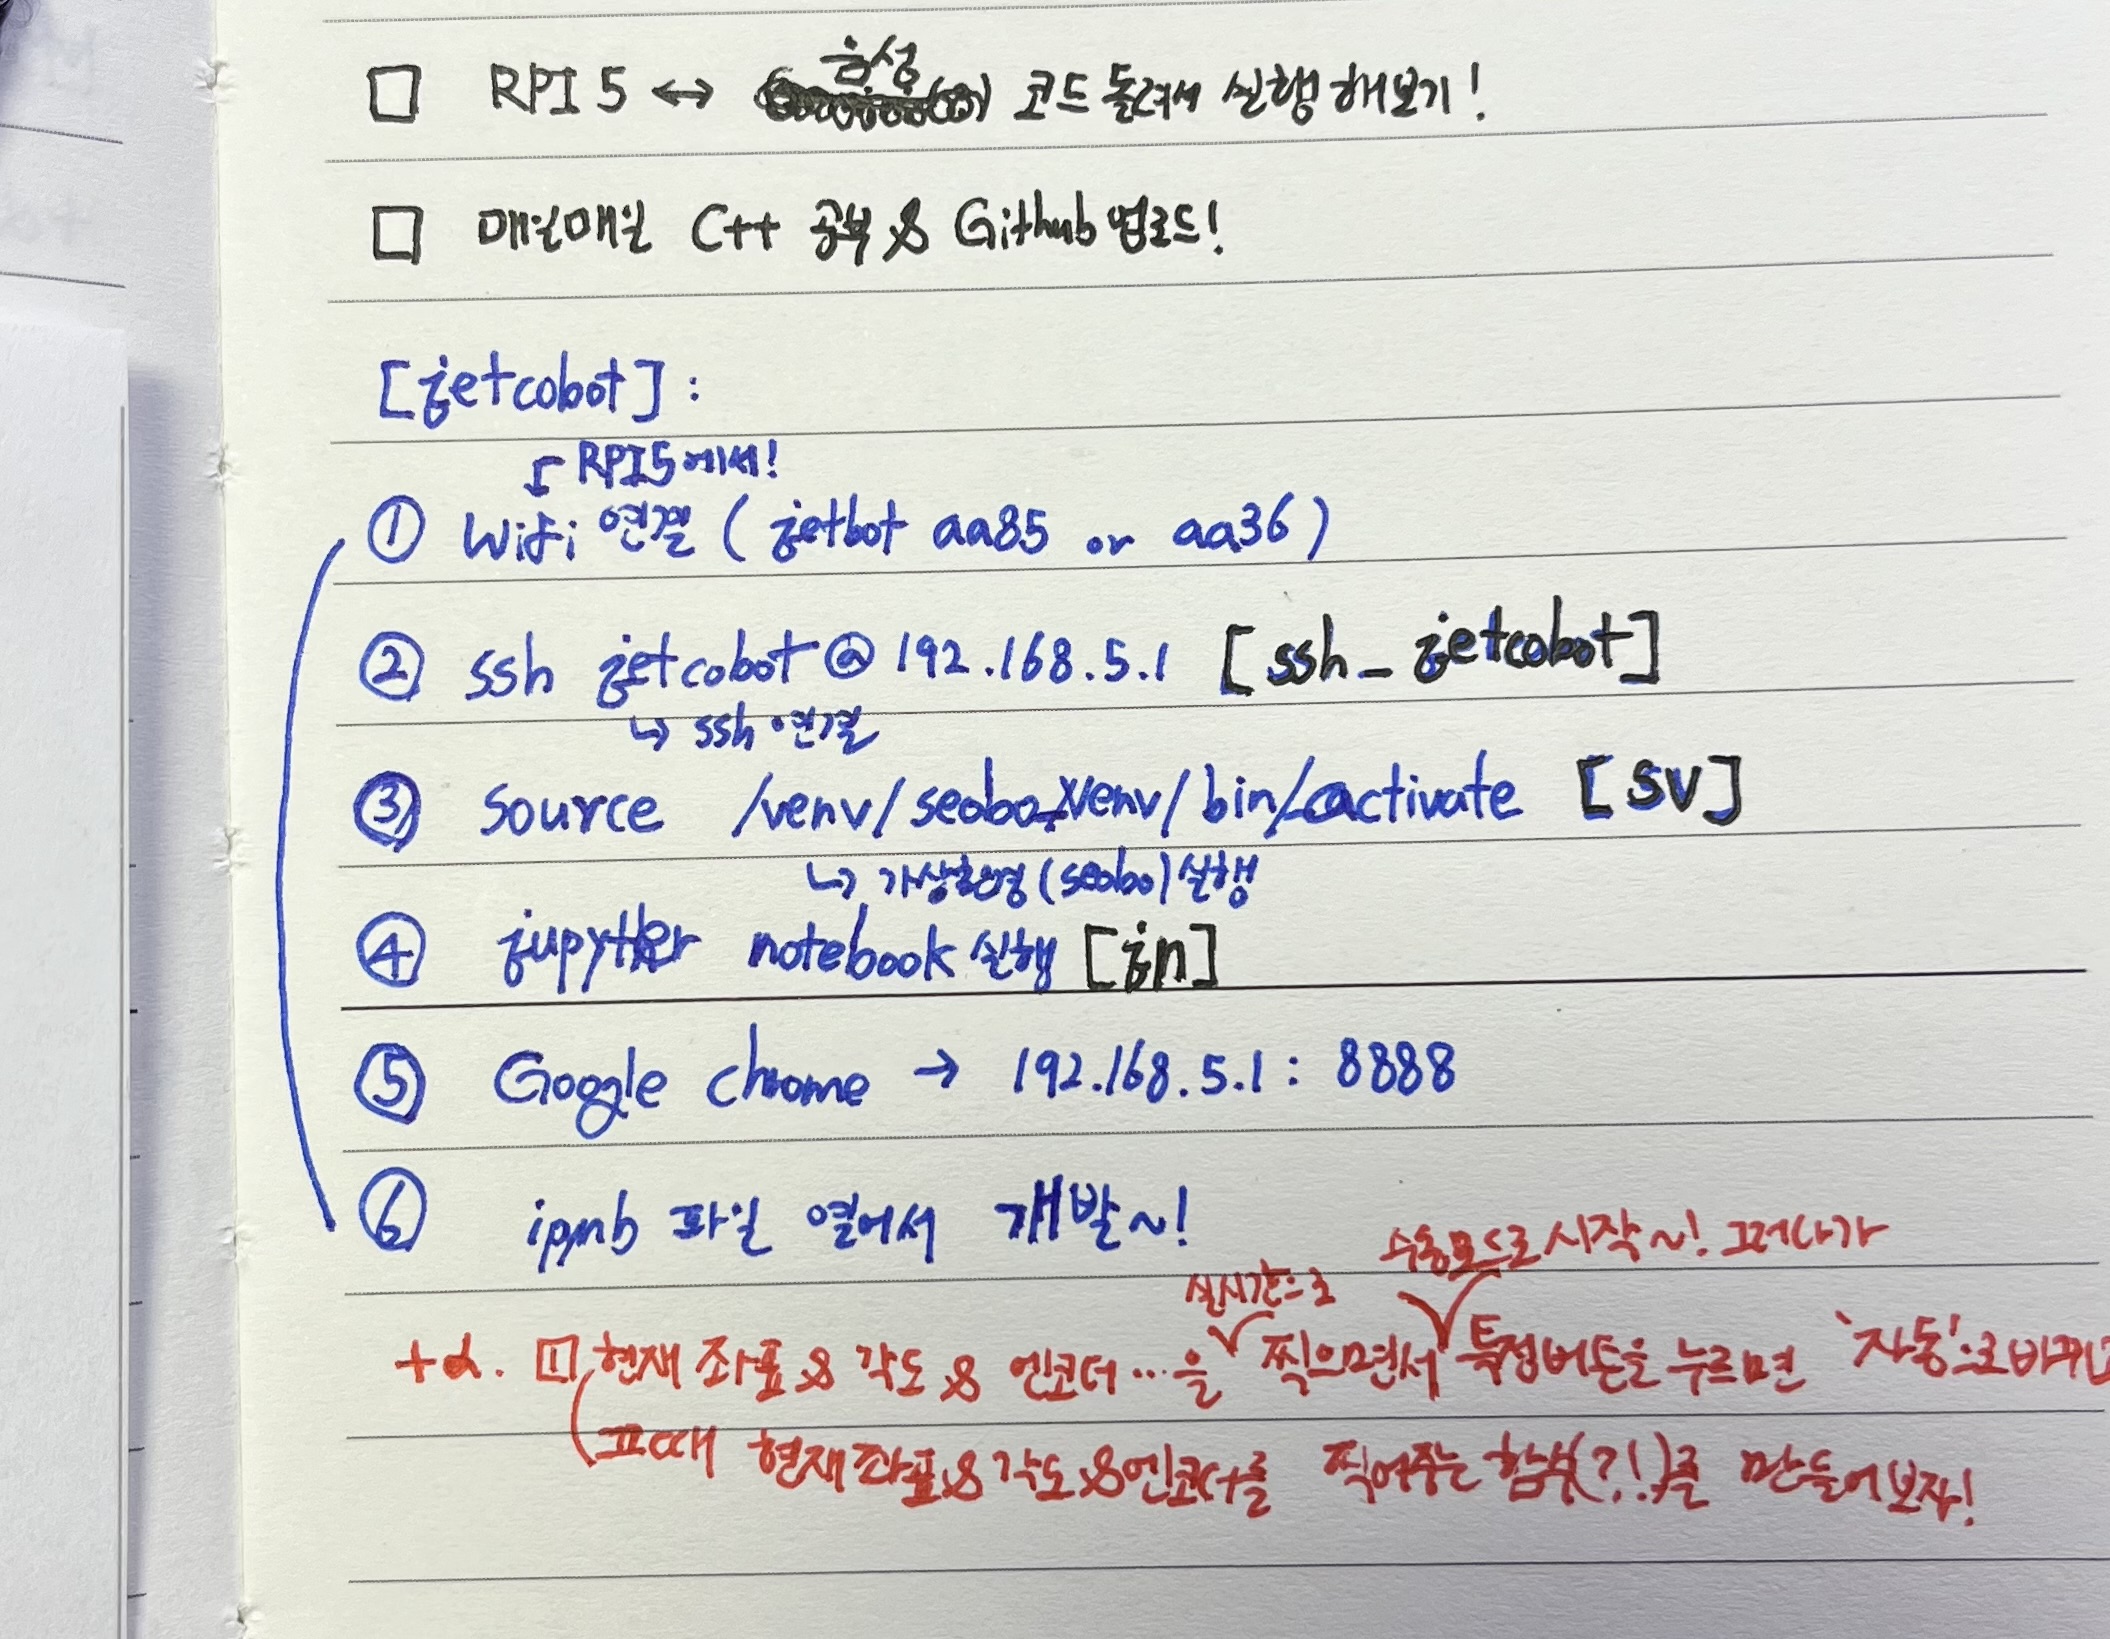 □ RPI 5 ↔ 음성 코드 돌려서 실행해보기!
□ 매일매일 C++ 공부 & Github 업로드!
[jetcobot] :
RPI5에서!
① Wifi 연결 ( jetbot aa85 or aa36 )
② ssh jetcobot@192.168.5.1 [ssh_jetcobot]
↳ ssh 연결
③ source /venv/seobo_venv/bin/activate [sv]
↳ 가상환경(seobo) 실행
④ jupyter notebook 실행 [jn]
⑤ Google chrome → 192.168.5.1 : 8888
⑥ ipynb 파일 열어서 개발~!
수동모드로 시작~! 그러다가
실시간으로
+α. 1 현재 좌표 & 각도 & 엔코더…을 찍으면서 특정버튼을 누르면 '자동'으로 바뀌고
그때 현재좌표 & 각도 & 엔코더를 찍어주는 함수(?!)를 만들어보자!